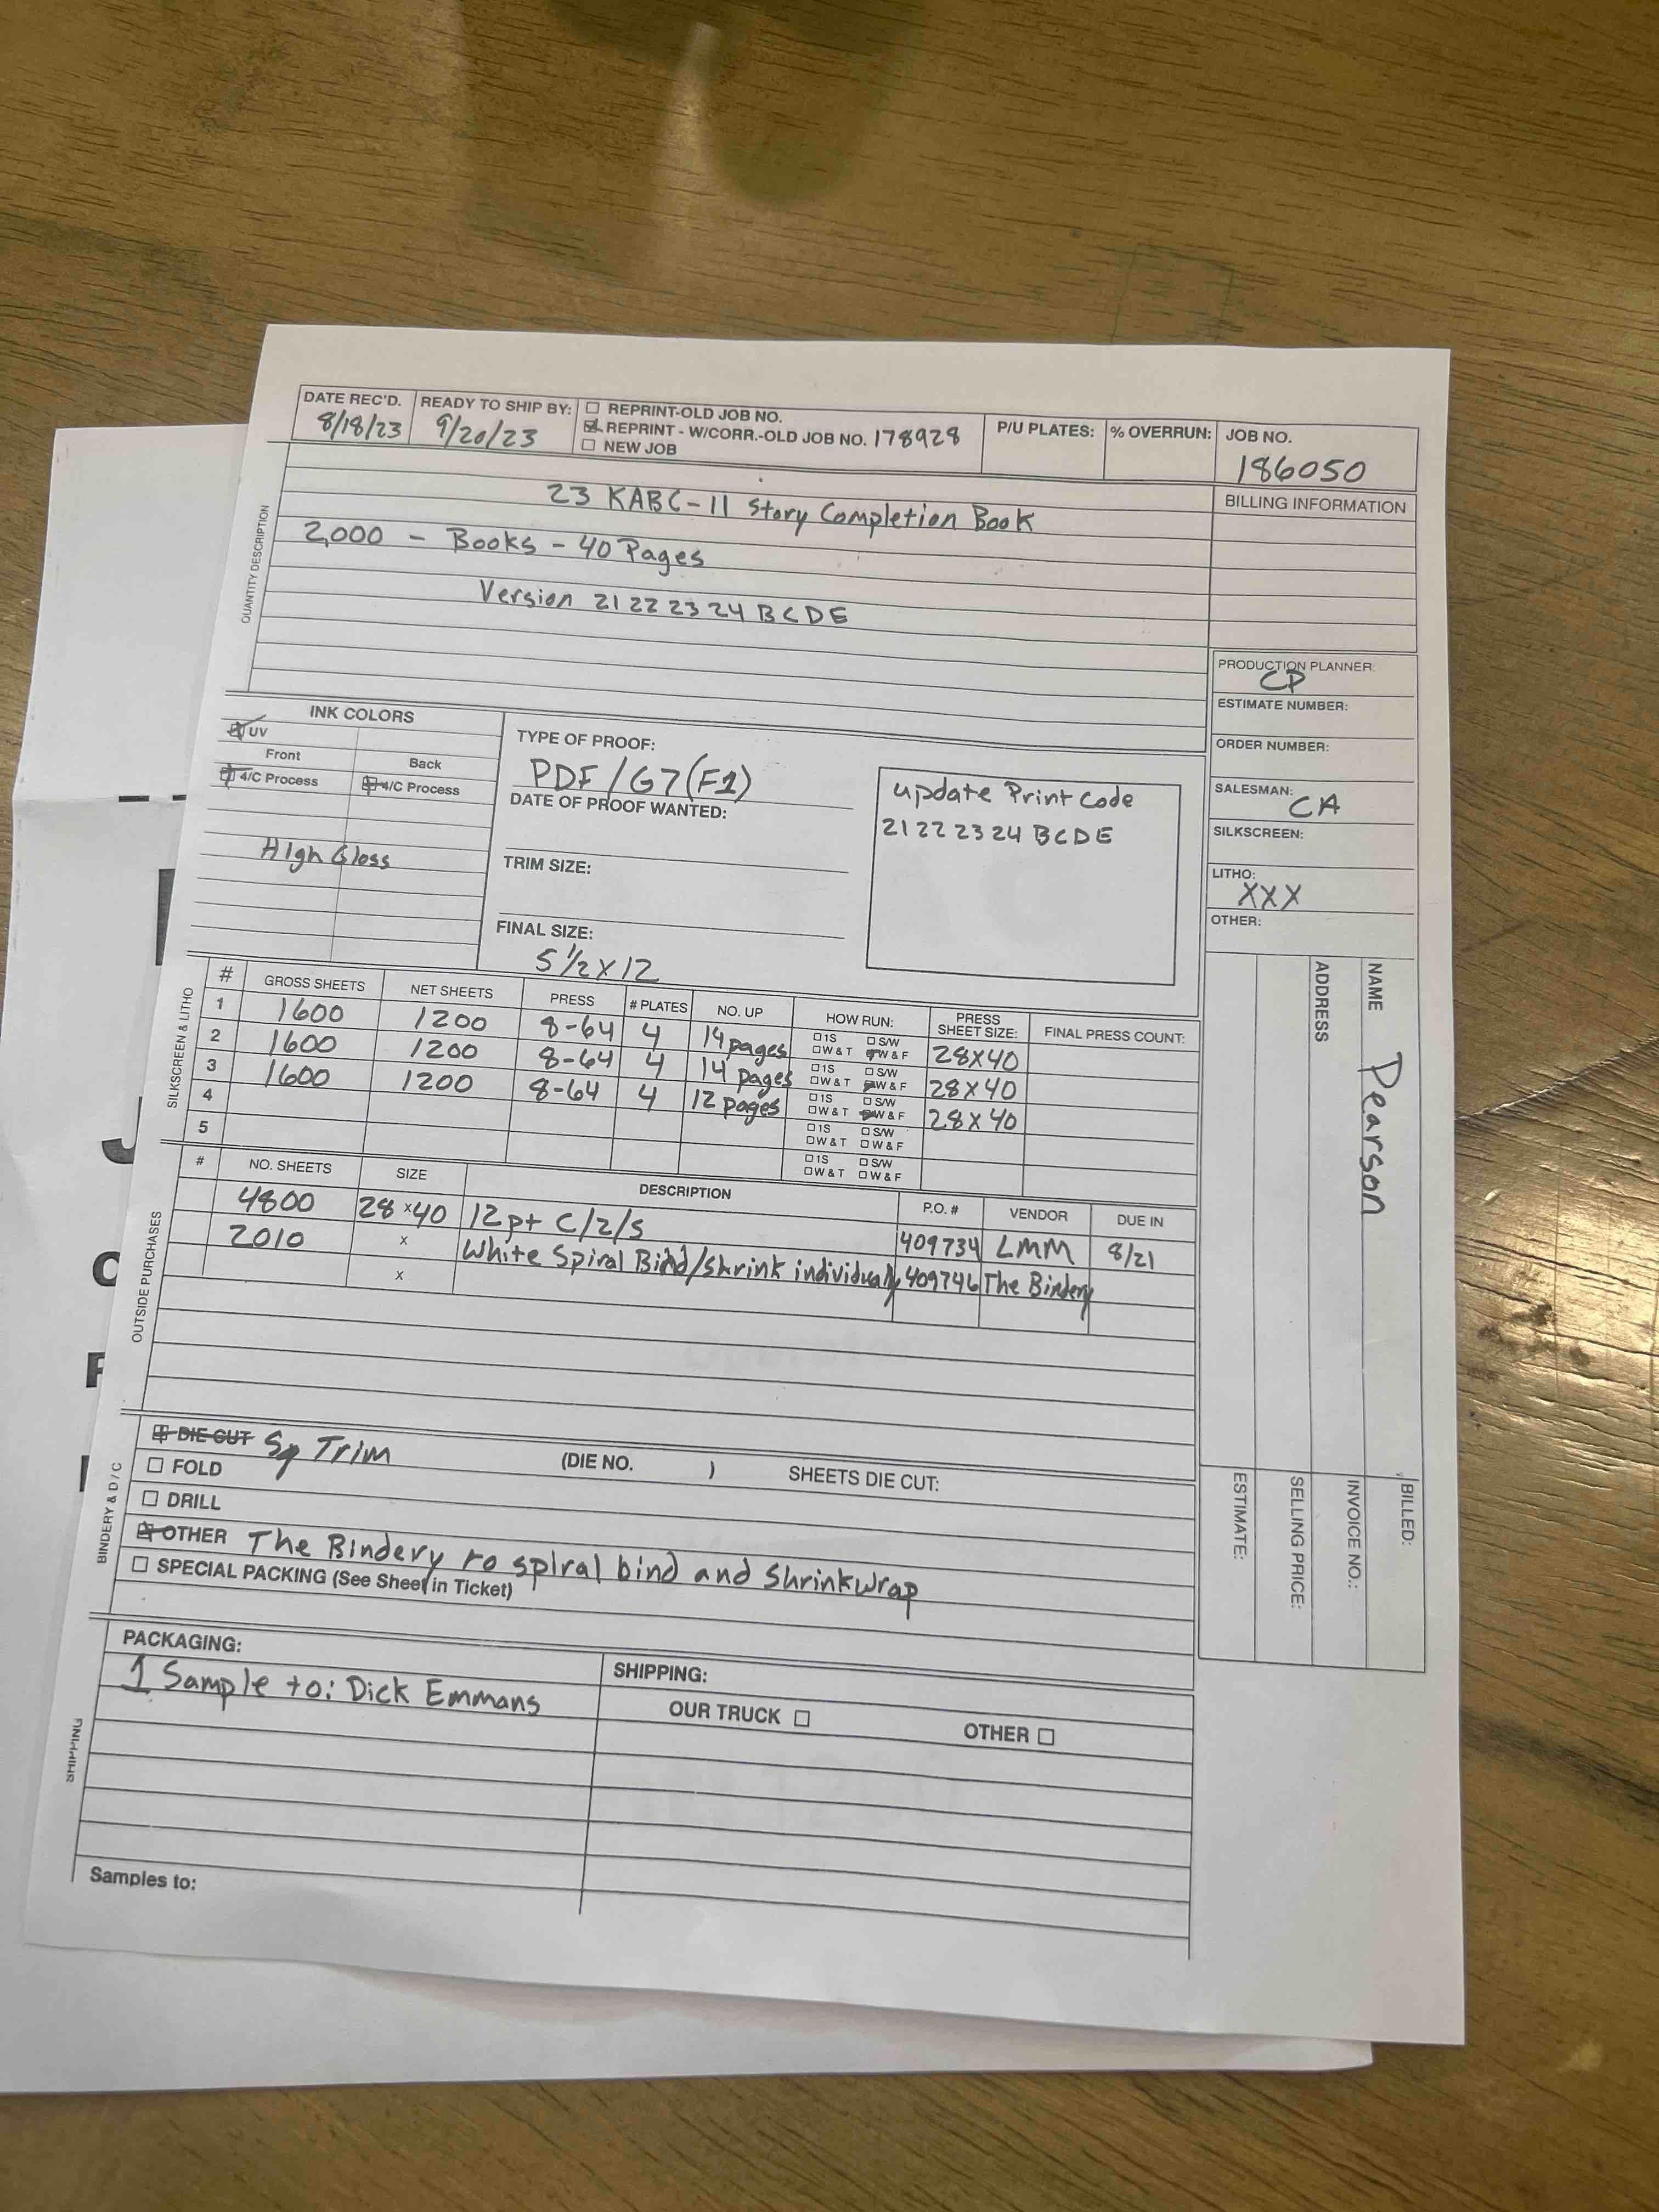 DATE REC'D. READY TO SHIP BY: ☐ REPRINT-OLD JOB NO. P/U PLATES: % OVERRUN: JOB NO.
8/18/23 9/20/23 ☑ REPRINT - W/CORR.-OLD JOB NO. 178928 186050
☐ NEW JOB
BILLING INFORMATION
QUANTITY DESCRIPTION
23 KABC-11 Story Completion Book
2,000 - Books - 40 Pages
Version 21 22 23 24 B C D E
PRODUCTION PLANNER:
CP
ESTIMATE NUMBER:
ORDER NUMBER:
SALESMAN:
CA
SILKSCREEN:
LITHO:
XXX
OTHER:
INK COLORS
☑ UV
Front Back
☑ 4/C Process ☑ 4/C Process
High Gloss
TYPE OF PROOF:
PDF/G7(F1)
DATE OF PROOF WANTED:
TRIM SIZE:
FINAL SIZE:
5 1/2 X 12
update Print Code
21 22 23 24 B C D E
SILKSCREEN & LITHO
# GROSS SHEETS NET SHEETS PRESS # PLATES NO. UP HOW RUN: PRESS SHEET SIZE: FINAL PRESS COUNT:
1 1600 1200 8-64 4 14 pages ☐ 1S ☐ S/W ☐ W & T ☑ W & F 28X40
2 1600 1200 8-64 4 14 pages ☐ 1S ☐ S/W ☐ W & T ☑ W & F 28X40
3 1600 1200 8-64 4 12 pages ☐ 1S ☐ S/W ☐ W & T ☑ W & F 28X40
4 ☐ 1S ☐ S/W ☐ W & T ☐ W & F
5 ☐ 1S ☐ S/W ☐ W & T ☐ W & F
OUTSIDE PURCHASES
# NO. SHEETS SIZE DESCRIPTION P.O. # VENDOR DUE IN
4800 28 x 40 12pt C/2/S 409734 LMM 8/21
2010 x White Spiral Bind/shrink individually 409746 The Bindery
x
BINDERY & D / C
☑ DIE CUT Sq Trim (DIE NO. ) SHEETS DIE CUT:
☐ FOLD
☐ DRILL
☑ OTHER The Bindery to spiral bind and shrinkwrap
☐ SPECIAL PACKING (See Sheet in Ticket)
SHIPPING
PACKAGING:
1 Sample to: Dick Emmans
SHIPPING:
OUR TRUCK ☐ OTHER ☐
Samples to:
NAME Pearson
ADDRESS
BILLED:
INVOICE NO.:
SELLING PRICE:
ESTIMATE: